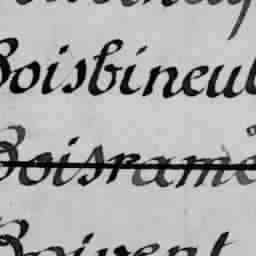 Boisbineul
Boisramé
Boivent